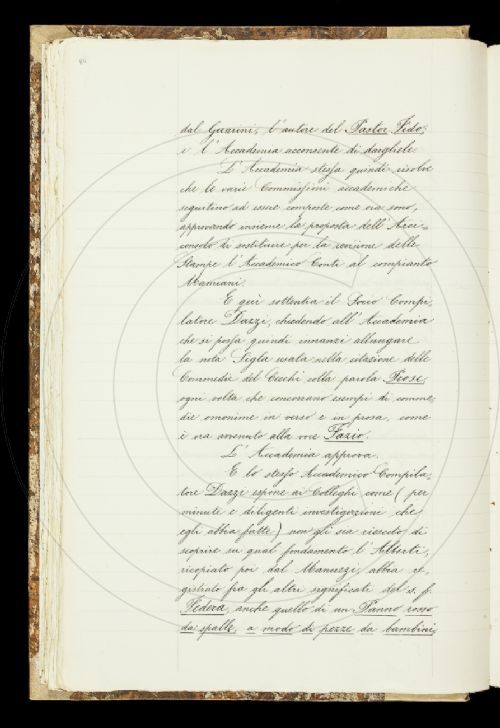 dal Guarini, l'autore del Pastor Fido;
e l'Accademia acconsente di darglielo.
L'Accademia stessa quindi risolve
che le varie Commissioni accademiche
seguitino ad essere composte come ora sono,
approvando insieme la proposta dell'Arci=
consolo di sostituire per la revisione delle
Stampe l'Accademico Conti al compianto
Mamiani.
E qui sottentra il Socio Compi,
latore Dazzi, chiedendo all'Accademia
che si possa quindi innanzi allungare
la nota Sigla usata nella citazione delle
Commedie del Cecchi colla parola Prose,
ogni volta che concorrano esempi di comme,
die omonime in verso e in prosa, come
è ora avvenuto alla voce Fazio.
L'Accademia approva.
E lo stesso Accademico Compila,
tore Dazzi espone ai Colleghi come (per
minute e diligenti investigazioni che
egli abbia fatte) non gli sia riescito di
scoprire su qual fondamento l'Alberti,
ricopiato poi dal Manuzzi, abbia re,
gistrato fra gli altri significati del s. f.
Federa, anche quello di un Panno rosso
da spalle, a modo di pezze da bambini,